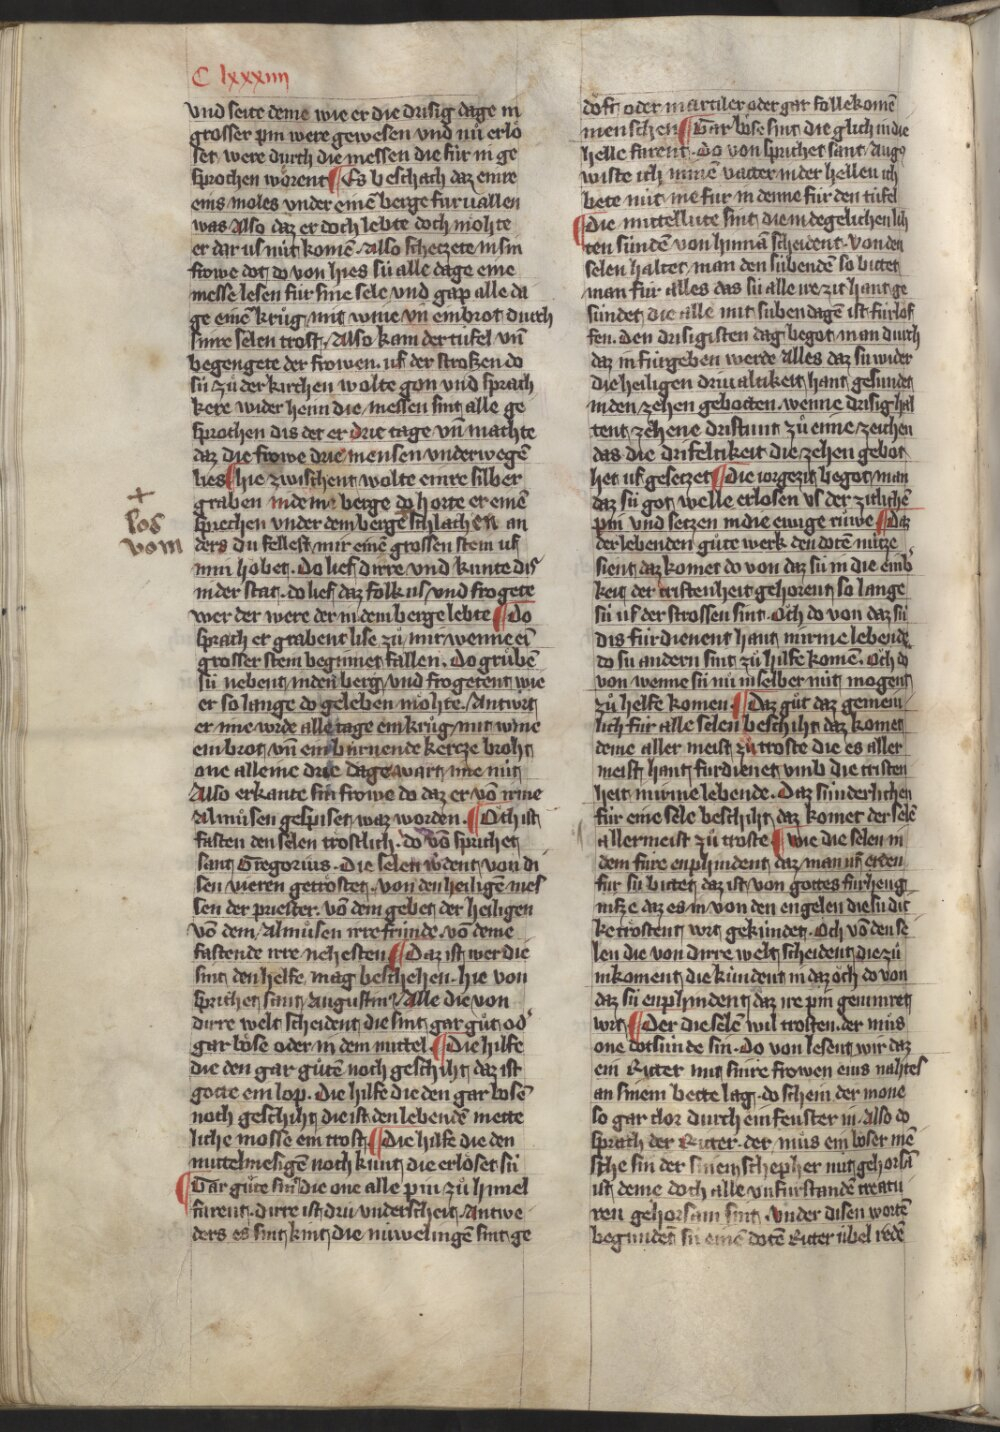 C lxxxiiii
vnd seite deme wie er die drisig dage in
grosser pin were gewesen vnd nü erlo
set were durch die messen die für in ge
sprochen wörent Es beschach daz einre
eins moles vnder eime berge für uallen
was Also daz er doch lebte doch mohte
er dar us nüt komē Also scheczete in sin
frowe dot do von hies sü alle dage eine
messe lesen für sine sele vnd gap alle da
ge einē krůg mit wine vn̄ ein brot durch
sinre selen trost Also kam der tüfel vn̄
begengete der frowen uf der stroßen do
sü zů der kirchen wolte gon vnd sprach
kere wider heim die messen sint alle ge
sprochen dis det er drie tage vn̄ machte
daz die frowe drie messen vnderwegē
lies hie zwischent wolte einre silber
graben in deme berge do horte er einē
sprechen vnder dem berge schlachen an
ders du fellest mir einē grossen stein uf
min höbet. Do lief dirre vnd kunte dis
in der stat. do lief daz folk us vnd frogete
wer der were der in dem berge lebte Do
sprach er grabent lise zů mir wenne ei
grosser stein beginnet fallen. Do grůbē
sü nebent in den berg vnd frogetent wie
er so lange do geleben möhte. Antwürt
er mir wrde alle tage ein krůg mit wine
ein brot vn̄ ein burnende kercze broht
one alleine drie dage wart mir nüt
Also erkante sin frowe do daz er vō irme
almůsen gespiset waz worden. Och ist
fasten den selen trostlich. do vō sprichet
sant Gregorius. Die selen wdent von di
sen vieren getröstet. von den heiligē mes
sen der priester. vō dem gebet der heiligen
vō dem Almůsen irre fründe. vō deme
fastende irre nehesten Daz ist wer die
sint den helfe mag beschehen. hie von
sprichet sant Augustin Alle die von
dirre welt scheident die sint gar gůt od'
gar böse oder in dem mittel Die hilfe
die den gar gůten noch geschiht daz ist
gotte ein lop. Die hilfe die den gar bösē
noch geschiht die ist den lebendē mette
liche mosse ein trost Die hilfe die den
mittelmesigē noch kunt die erlöset sü
Gar gůte sint die one alle pin zů himel
farent. dirre ist dri vnderscheit. Antwe
ders es sint kint die nüwelingē sint ge
+
los
vom
doft oder martiler oder gar follekomē
menschen Gar böse sint die glich in die
helle farent. Do von sprichet sant Augo
wiste ich minē vatter in der hellen ich
bete nüt me für in denne für den tüfel
Die mittellüte sint die in degelichen sch
ten sündē von hinnā scheident. Von den
selen haltet man den sübendē so bittet
man für alles das sü alle ire zit hant ge
sündet die alle mit süben dagē ist fürlof
fen. Den drisigisten dag begot man durch
daz in fürgeben werde alles daz sü wider
die heiligen driualtikeit hant gesündet
in den zehen gebotten. wenne drisig hal
tent zehene dristunt zů eime zeichen
das die drifeltikeit die zehen gebot
het uf gesetzet Die iorgezit begot man
daz sü got welle erlösen vs der zitlichē
pin vnd setzen in die ewige růwe Daz
der lebenden gůte werk den dotē nütze
sient daz komet do von daz sü in die einb'
keit der cristenheit gehörent so lange
sü uf der strossen sint. Och do von daz sü
dis fürdienent hant mirme lebende
do sü andern sint zů hilfe komē. Och do
von wenne sü nü in selber nüt mogent
zů helfe komen. Daz gůt daz gemein
lich für alle selen beschiht daz komet
deme aller meist zů troste die es aller
meist hant fürdienet vmb die cristen
heit mirme lebende. Daz sünderlichen
für eine sele beschiht daz komet der selē
aller meist zů troste wie die selen in
dem füre enphindent daz man uf erden
für sü bittet daz ist von gottes fürheng
nisze daz es in von den engelen die sü dic
ke tröstent wrt gekündet. Och vō den se
len die von dirre welt scheident die zů
in koment die kündent in daz öch do von
daz sü enphindent daz ire pin geminret
wrt Der die selē wil trösten. der můs
one dotsünde sin. Do von lesent wir daz
ein Ritter mit sinre frowen eins nahtes
an sinem bette lag. do schein der mone
so gar clor durch ein fenster in. Also do
sprach der Ritter. der můs ein böser mē
sche sin der sinem schepher nüt gehorsā
ist deme doch alle vnfürstandē creatu
ren gehorsam sint. Vnder disen wortē
begundet sü einē dotē Ritter übel redē